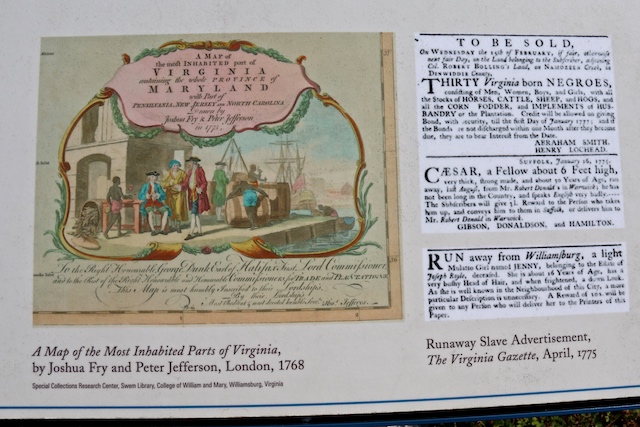 A MAP of
the most INHABITED part of
VIRGINIA
containing the whole PROVINCE of
MARYLAND
with Part of
PENSILVANIA, NEW JERSEY AND NORTH CAROLINA
Drawn by
Joshua Fry & Peter Jefferson
in 1775.
To the Right Honourable, George Dunk Earl of Halifax First Lord Commissioner,
and to the Rest of the Right Honourable and Honourable Commissioners, for TRADE and PLANTATIONS,
This Map is most humbly Inscribed to their Lordship's,
By their Lordship's
Most Obedient & most devoted humble Serv.t Thos. Jefferys.
A Map of the Most Inhabited Parts of Virginia,
by Joshua Fry and Peter Jefferson, London, 1768
Special Collections Research Center, Swem Library, College of William and Mary, Williamsburg, Virginia
TO BE SOLD,
On WEDNESDAY the 15th of FEBRUARY, if fair, otherwise
next fair Day, on the Land belonging to the Subscriber, adjoining
Col. ROBERT BOLLING's Land, on NAMOZEEN Creek, in
DINWIDDIE County,
THIRTY Virginia born NEGROES,
consisting of Men, Women, Boys, and Girls, with all
the Stocks of HORSES, CATTLE, SHEEP, and HOGS, and
all the CORN FODDER, and IMPLEMENTS of HUS-
BANDRY on the Plantation. Credit will be allowed on giving
Bond, with security, till the first Day of January 1777; and if
the Bonds are not discharged within one Month after they become
due, they are to bear Interest from the Date.
ABRAHAM SMITH.
HENRY LOCHEAD.
SUFFOLK, January 16, 1775.
CÆSAR, a Fellow about 6 Feet high,
very thick, strong made, and about 30 Years of Age, ran
away, last August, from Mr. Robert Donald's in Warwick; he has
not been long in the Country, and speaks English very badly.
The Subscribers will give 5l. Reward to the Person who takes
him up, and conveys him to them in Suffolk, or delivers him to
Mr. Robert Donald in Warwick.
GIBSON, DONALDSON, and HAMILTON.
RUN away from Williamsburg, a light
Mulatto Girl named JENNY, belonging to the Estate of
Joseph Royle, deceased. She is about 16 Years of Age, has a
very bushy Head of Hair, and when frightened, a down Look.
As she is well known in the Neighbourhood of this City, a more
particular Description is unnecessary. A Reward of 10s. will be
given to any Person who will deliver her to the Printers of this
Paper.
Runaway Slave Advertisement,
The Virginia Gazette, April, 1775